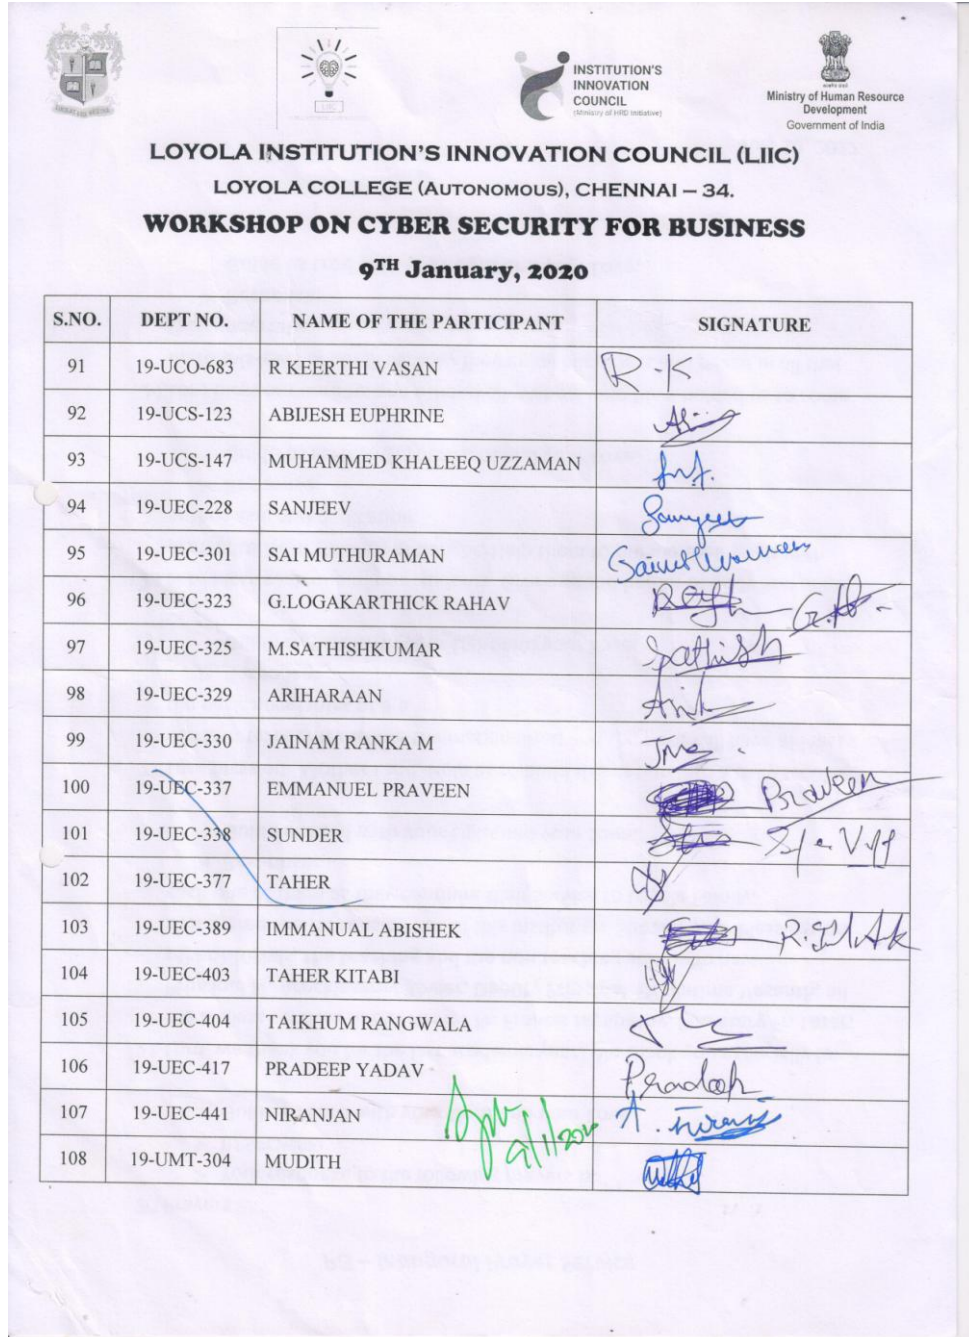 INSTITUTION'S
INNOVATION
COUNCIL
(Ministry of HRD Initiative)
Ministry of Human Resource
Development
Government of India
LOYOLA INSTITUTION'S INNOVATION COUNCIL (LIIC)
LOYOLA COLLEGE (AUTONOMOUS), CHENNAI – 34.
WORKSHOP ON CYBER SECURITY FOR BUSINESS
9TH January, 2020
S.NO. DEPT NO. NAME OF THE PARTICIPANT SIGNATURE
91 19-UCO-683 R KEERTHI VASAN R.K
92 19-UCS-123 ABIJESH EUPHRINE
93 19-UCS-147 MUHAMMED KHALEEQ UZZAMAN
94 19-UEC-228 SANJEEV Sanjeev
95 19-UEC-301 SAI MUTHURAMAN
96 19-UEC-323 G.LOGAKARTHICK RAHAV
97 19-UEC-325 M.SATHISHKUMAR Sathish
98 19-UEC-329 ARIHARAAN
99 19-UEC-330 JAINAM RANKA M
100 19-UEC-337 EMMANUEL PRAVEEN Praveen
101 19-UEC-338 SUNDER
102 19-UEC-377 TAHER
103 19-UEC-389 IMMANUAL ABISHEK
104 19-UEC-403 TAHER KITABI
105 19-UEC-404 TAIKHUM RANGWALA
106 19-UEC-417 PRADEEP YADAV Pradeep
107 19-UEC-441 NIRANJAN
108 19-UMT-304 MUDITH
9/1/2020